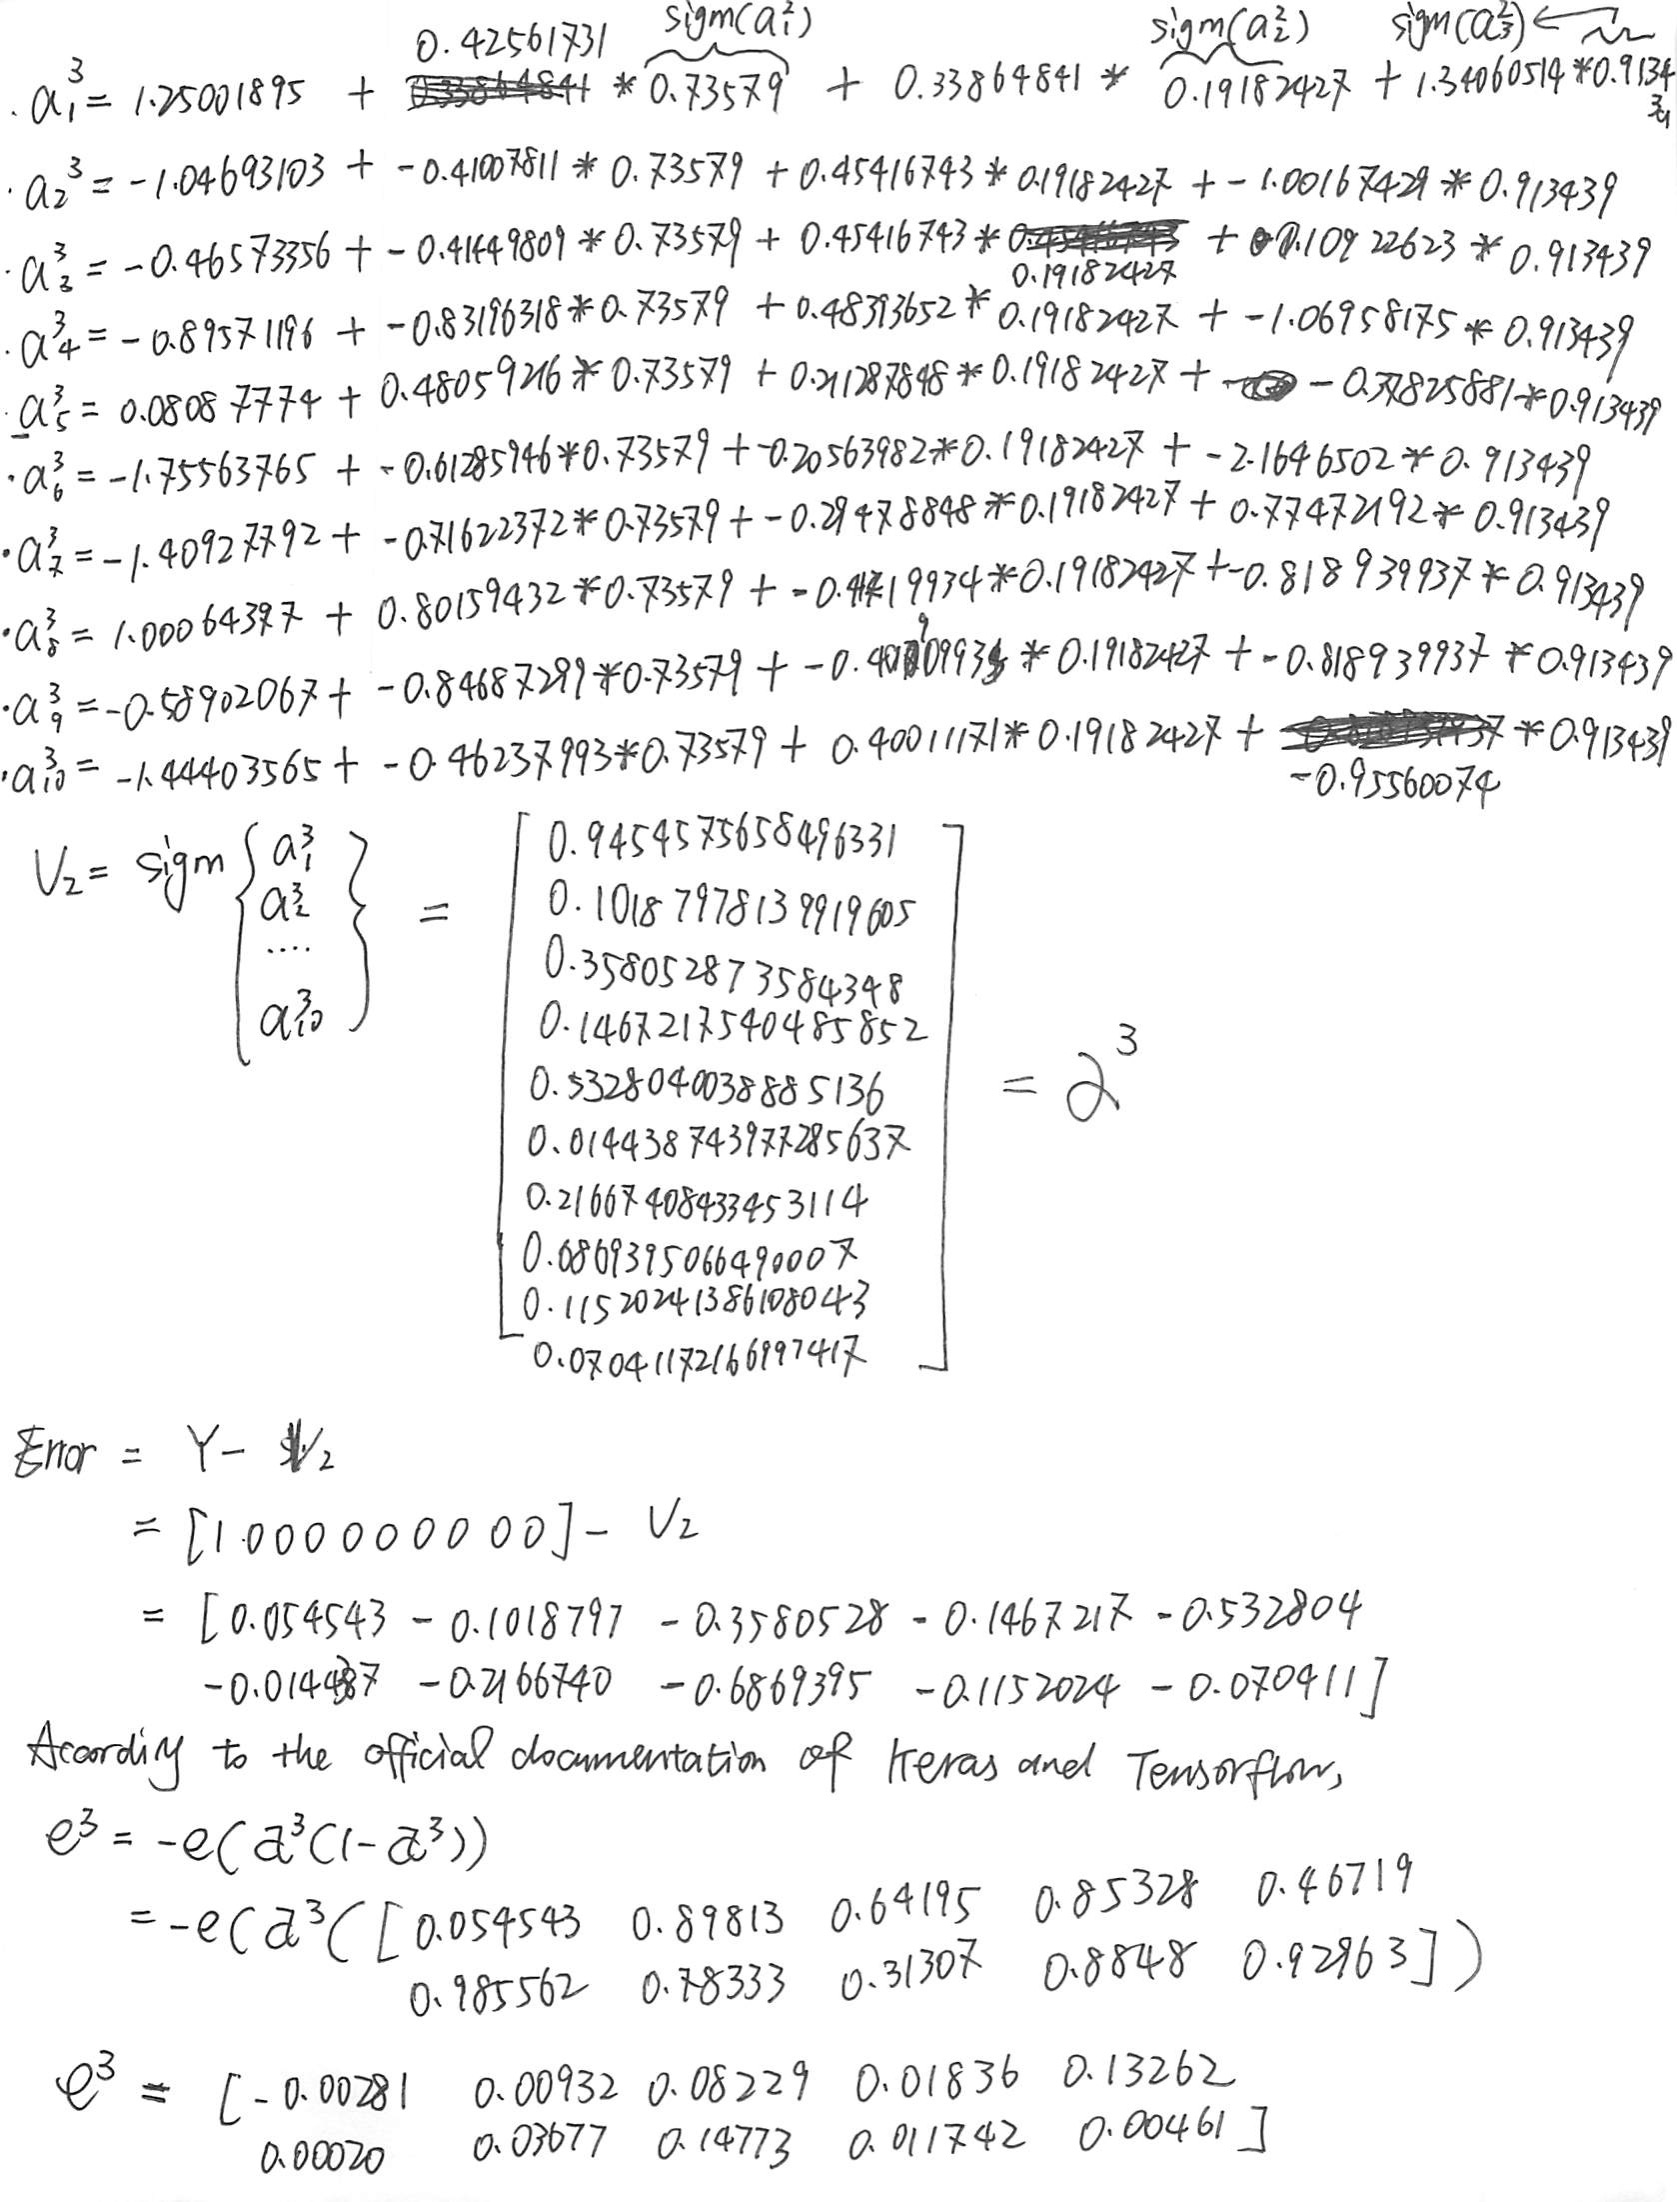 0.42561731 sigm(a₁²) sigm(a₂²) sigm(a₃²) ←
· a₁³ = 1.25001895 + * 0.73579 + 0.33864841 * 0.19182427 + 1.34060514 * 0.913439
· a₂³ = -1.04693103 + -0.41007811 * 0.73579 + 0.45416743 * 0.19182427 + -1.00167429 * 0.913439
· a₃³ = -0.46573356 + -0.41449809 * 0.73579 + 0.45416743 * + 0.10922623 * 0.913439
0.19182427
· a₄³ = -0.89571196 + -0.83196318 * 0.73579 + 0.48393652 * 0.19182427 + -1.06958175 * 0.913439
· a₅³ = 0.08087774 + 0.48059216 * 0.73579 + 0.21287848 * 0.19182427 + -0.37825881 * 0.913439
· a₆³ = -1.75563765 + -0.61285946 * 0.73579 + -0.20563982 * 0.19182427 + -2.1646502 * 0.913439
· a₇³ = -1.40927792 + -0.71622372 * 0.73579 + -0.29478848 * 0.19182427 + 0.77472192 * 0.913439
· a₈³ = 1.00064397 + 0.80159432 * 0.73579 + * 0.19182427 + -0.818939937 * 0.913439
· a₉³ = -0.58902067 + -0.84687299 * 0.73579 + * 0.19182427 + -0.818939937 * 0.913439
· a₁₀³ = -1.44403565 + -0.46237993 * 0.73579 + 0.40011171 * 0.19182427 + * 0.913439
-0.95560074
V₂ = sigm { a₁³ a₂³ .... a₁₀³ } =
0.9454575658496331
0.10187978139919605
0.358052873584348
0.1467217540485852
0.5328040038885136
0.014438743977285637
0.21667408433453114
0.6869395066490007
0.11520241386108043
0.07041172166997417
= a³
Error = Y - V₂
= [1 0 0 0 0 0 0 0 0 0] - V₂
= [0.054543 -0.1018797 -0.3580528 -0.1467217 -0.532804
-0.014437 -0.2166740 -0.6869395 -0.1152024 -0.070411]
Acording to the official documentation of Keras and Tensorflow,
e³ = -e(a³(1-a³))
= -e(a³([0.054543 0.89813 0.64195 0.85328 0.46719
0.985562 0.78333 0.31307 0.8848 0.92963])
e³ = [-0.00281 0.00932 0.08229 0.01836 0.13262
0.00020 0.03677 0.14773 0.011742 0.00461]